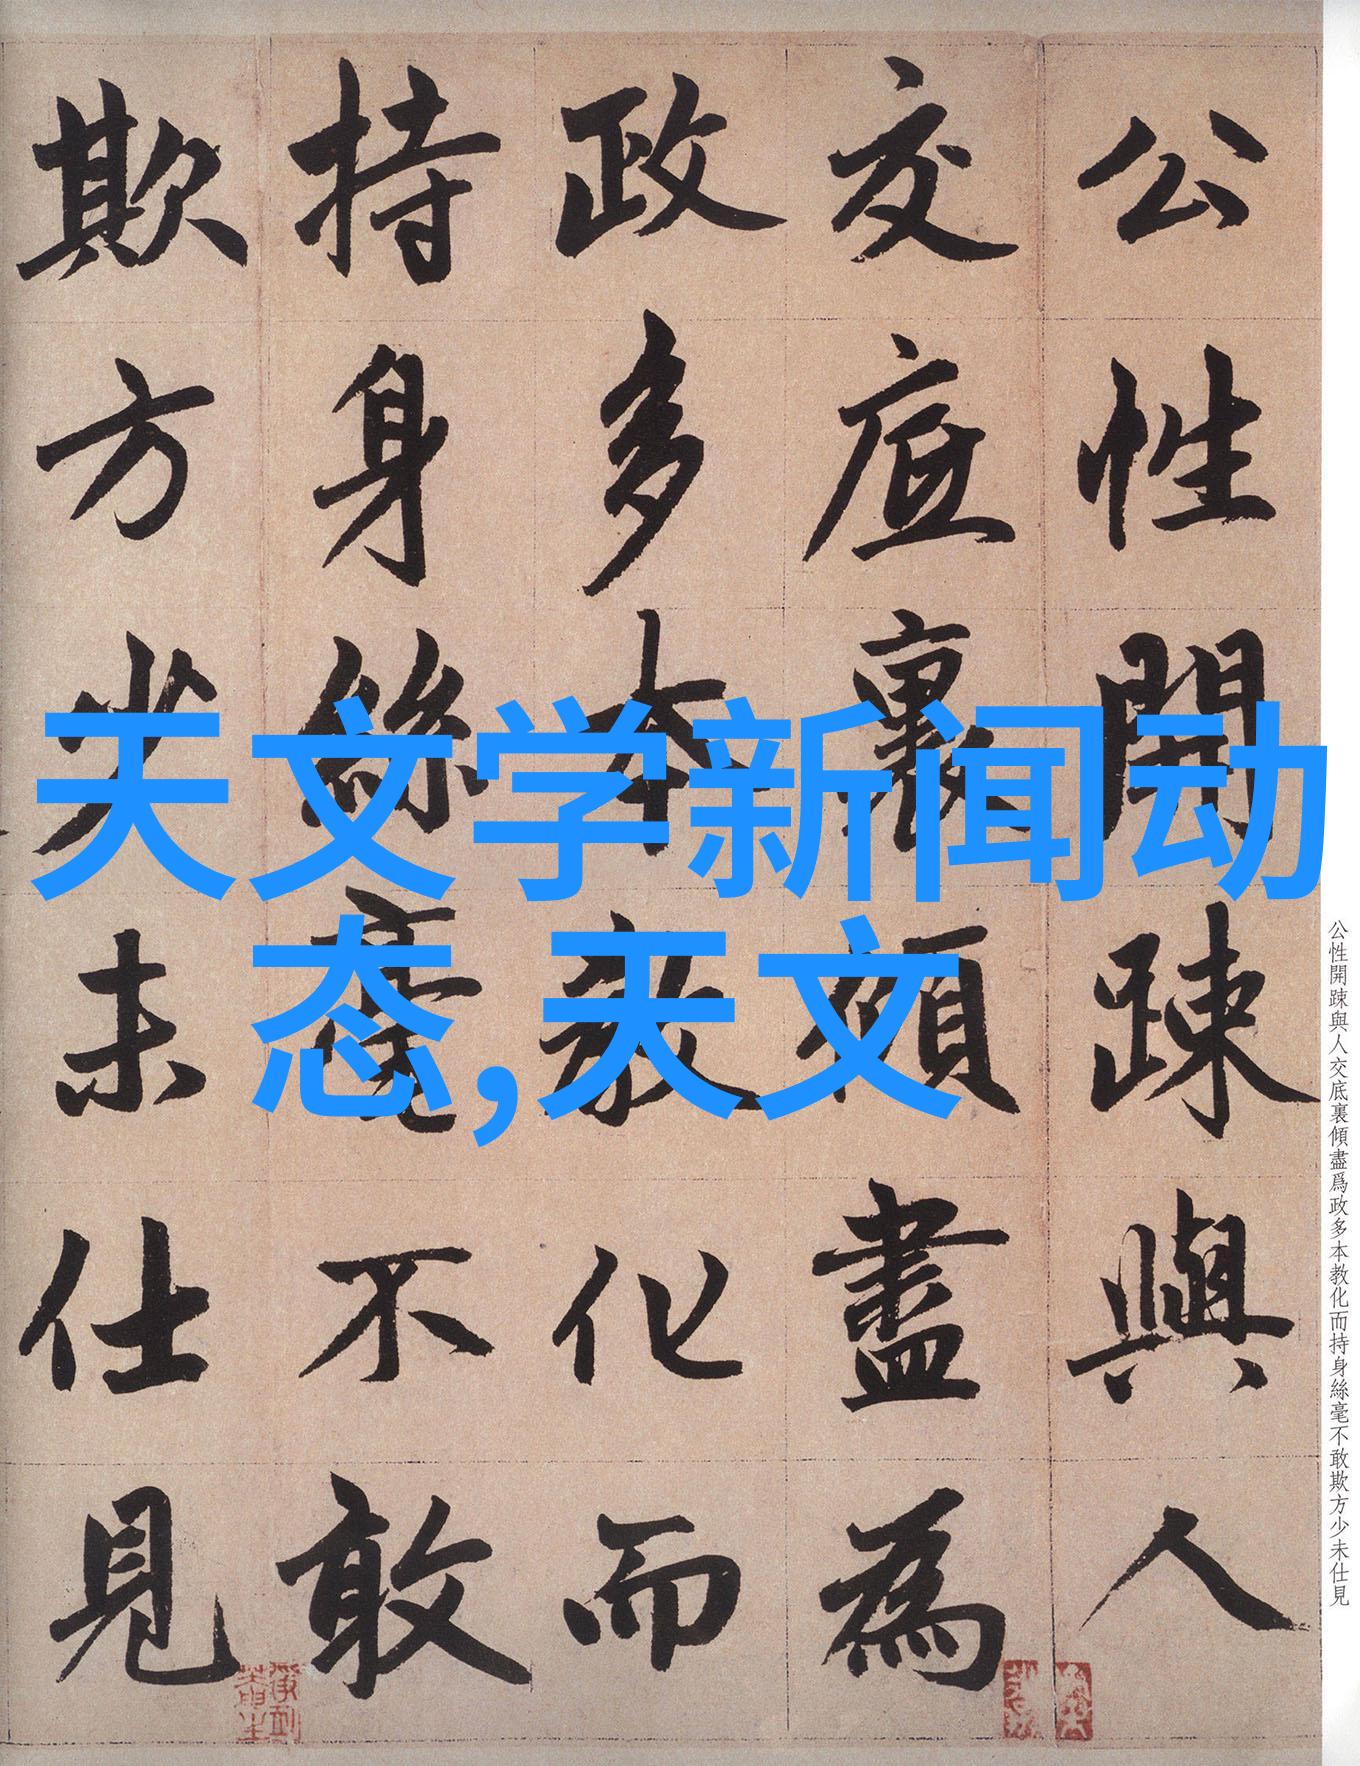 公性開踈與人
交底裏傾盡為
政多本教化而
持身絲毫不敢
欺方少未仕見
天文学新闻动
态,天文
公性開踈與人交底裏傾盡爲政多本教化而持身絲毫不敢欺方少未仕見